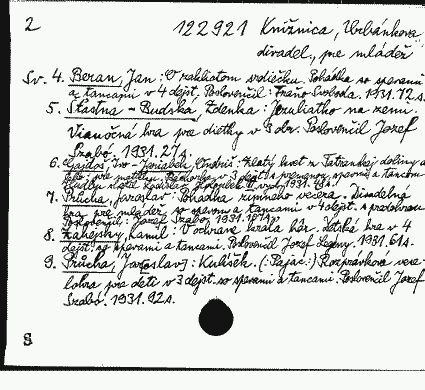 2
122921 Knižnica, Urbánkova
divadel, pre mládež
Sv. 4. Beran, Jan: O rakliatom srdiečku. Pohádka so spevami
a tancami v 4 dejst. Poslovenčil: Fraňo Svoboda. 1931. 72 s.
5. Šťastná - Budská, Zdenka: Jezuliatko na zemi.
Vianočná hra pre dietky v 5 obr. Poslovenčil Jozef
Szabó. 1931. 27 s.
6. Gajdoš, Ivo - Jeriabek, Ondriš: Zlatý kvet z Tatranskej doliny a
v 3 dejst. spevmi a tancom
1931. 43 s.
7. Průcha, Jaroslav: Pohádka zimného večera. Divadelná
hra pre mládež so spevmi a tancami v 4 dejst. s predohrou
Poslovenčil: Jozef Szabó. 1931.
8. Zahejský, Kamil: V ochrane kráľa hôr. Detská hra v 4
dejst. so spevami a tancami. Poslovenčil Jozef Legény. 1931. 61 s.
9. Průcha, Jar[oslav]: Kulíšek. (: Pajac :) Rozprávková vese-
lohra pre deti v 3 dejst. so spevami a tancami. Poslovenčil Jozef
Szabó. 1931. 92 s.
S